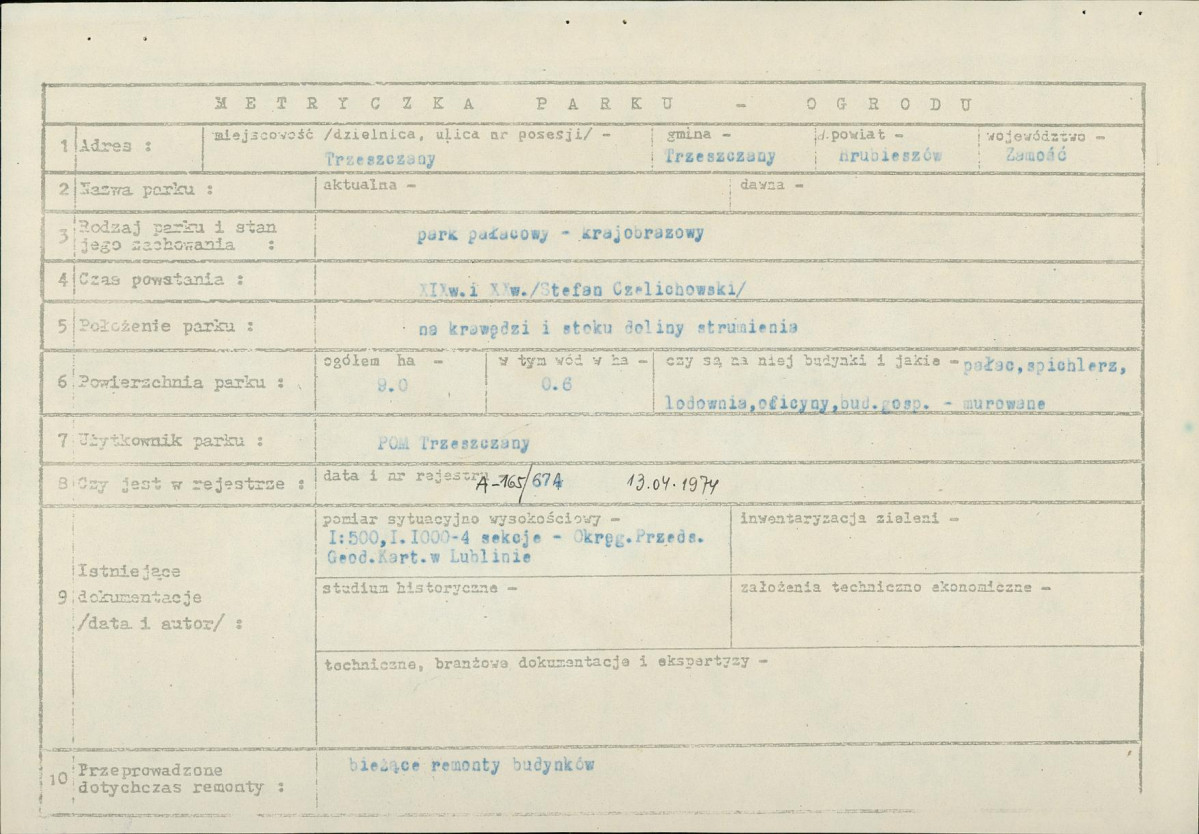 METRYCZKA PARKU - OGRODU
1 Adres : miejscowość /dzielnica, ulica nr posesji/ - gmina - d.powiat - województwo -
Trzeszczany Trzeszczany Hrubieszów Zamość
2 Nazwa parku : aktualna - dawna -
3 Rodzaj parku i stan
jego zachowania : park pałacowy - krajobrazowy
4 Czas powstania : XIXw.i XXw./Stefan Czelichowski/
5 Położenie parku : na krawędzi i stoku doliny strumienia
6 Powierzchnia parku : ogółem ha - w tym wód w ha - czy są na niej budynki i jakie - pałac,spichlerz,
9.0 0.6 lodownia,oficyny,bud.gosp. - murowane
7 Użytkownik parku : POM Trzeszczany
8 Czy jest w rejestrze : data i nr rejestru A-165/674 13.04.1974
9 Istniejące
dokumentacje
/data i autor/ :
pomiar sytuacyjno wysokościowy - inwentaryzacja zieleni -
I:500,I.I000-4 sekcje - Okręg.Przeds.
Geod.Kart.w Lublinie
studium historyczne - założenia techniczno ekonomiczne -
techniczne, branżowe dokumentacje i ekspertyzy -
10 Przeprowadzone
dotychczas remonty : bieżące remonty budynków